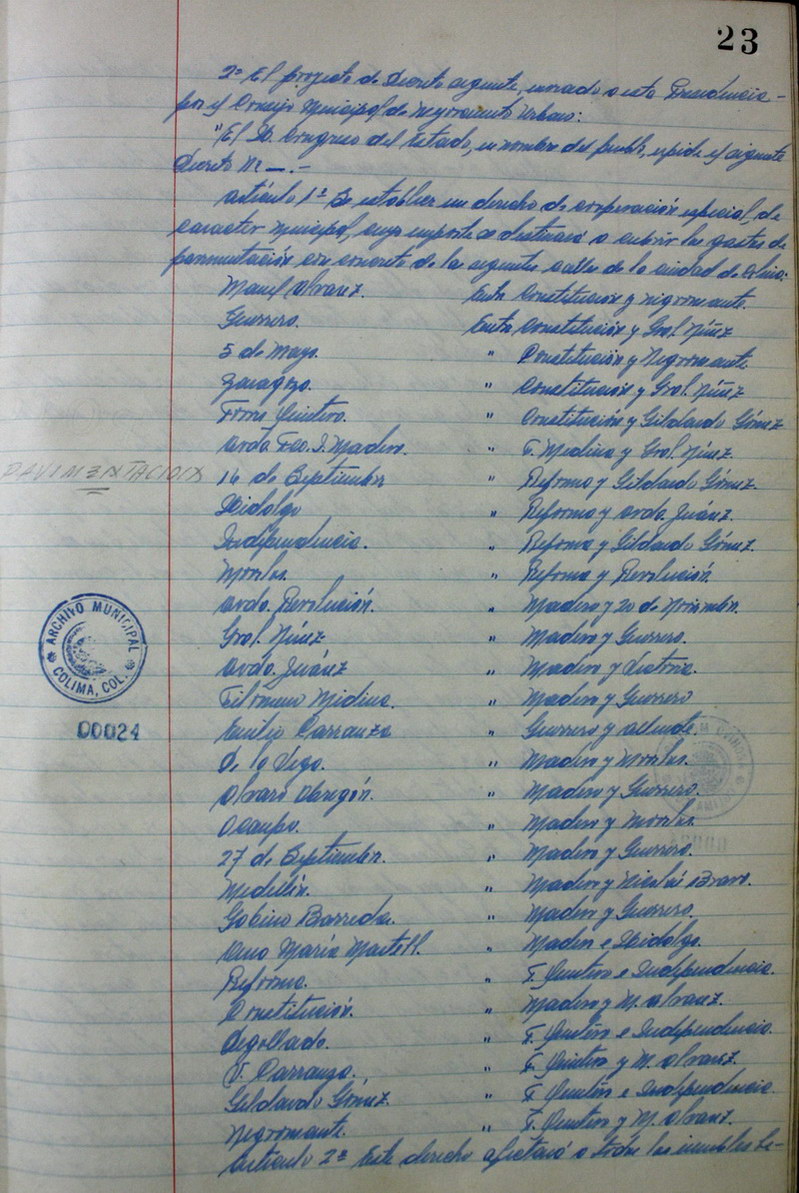 23
2º El proyecto de Decreto siguiente, enviado a esta Presidencia -
por el Consejo Municipal de Mejoramiento Urbano:
"El H. Congreso del Estado, en nombre del pueblo, expide el siguiente
Decreto Nº —.-
Artículo 1º Se establece un derecho de cooperación especial, de
caracter Municipal, cuyo importe se destinará a cubrir los gastos de
pavimentación con concreto de las siguientes calles de la ciudad de Colima:
Manuel Alvarez. Entre Constitución y Nigromante.
Guerrero. Entre Constitución y Gral. Núñez
5 de Mayo. " Constitución y Negromante
Zaragoza. " Constitución y Gral. Núñez
Torres Quintero. " Constitución y Gildardo Gómez
Avda. Fco. I. Madero. " F. Medina y Gral. Núñez.
PAVIMENTACION
16 de Septiembre " Reforma y Gildardo Gómez.
Hidalgo " Reforma y Avda. Juárez.
Independencia. " Reforma y Gildardo Gómez.
Morelos. " Reforma y Revolución.
Avda. Revolución. " Madero y 20 de Noviembre.
Gral. Núñez " Madero y Guerrero.
Avda. Juárez " Madero y Victoria.
Filomeno Medina. " Madero y Guerrero
Emilio Carranza " Guerrero y Allende.
De la Vega. " Madero y Morelos.
Alvaro Obregón. " Madero y Guerrero.
Ocampo. " Madero y Morelos.
27 de Septiembre. " Madero y Guerrero.
Medellín. " Madero y Nicolás Bravo.
Gabino Barreda. " Madero y Guerrero.
Ana María Martell. " Madero e Hidalgo.
Reforma. " T. Quintero e Independencia.
Constitución. " Madero y M. Alvarez.
Degollado. " T. Quintero e Independencia.
V. Carranza. " T. Quintero y M. Alvarez.
Gildardo Gómez. " T. Quintero e Independencia.
Negromante. " T. Quintero y M. Alvarez.
Artículo 2º Este derecho afectará a todos los inmuebles be-
ARCHIVO MUNICIPAL
COLIMA, COL.
00024